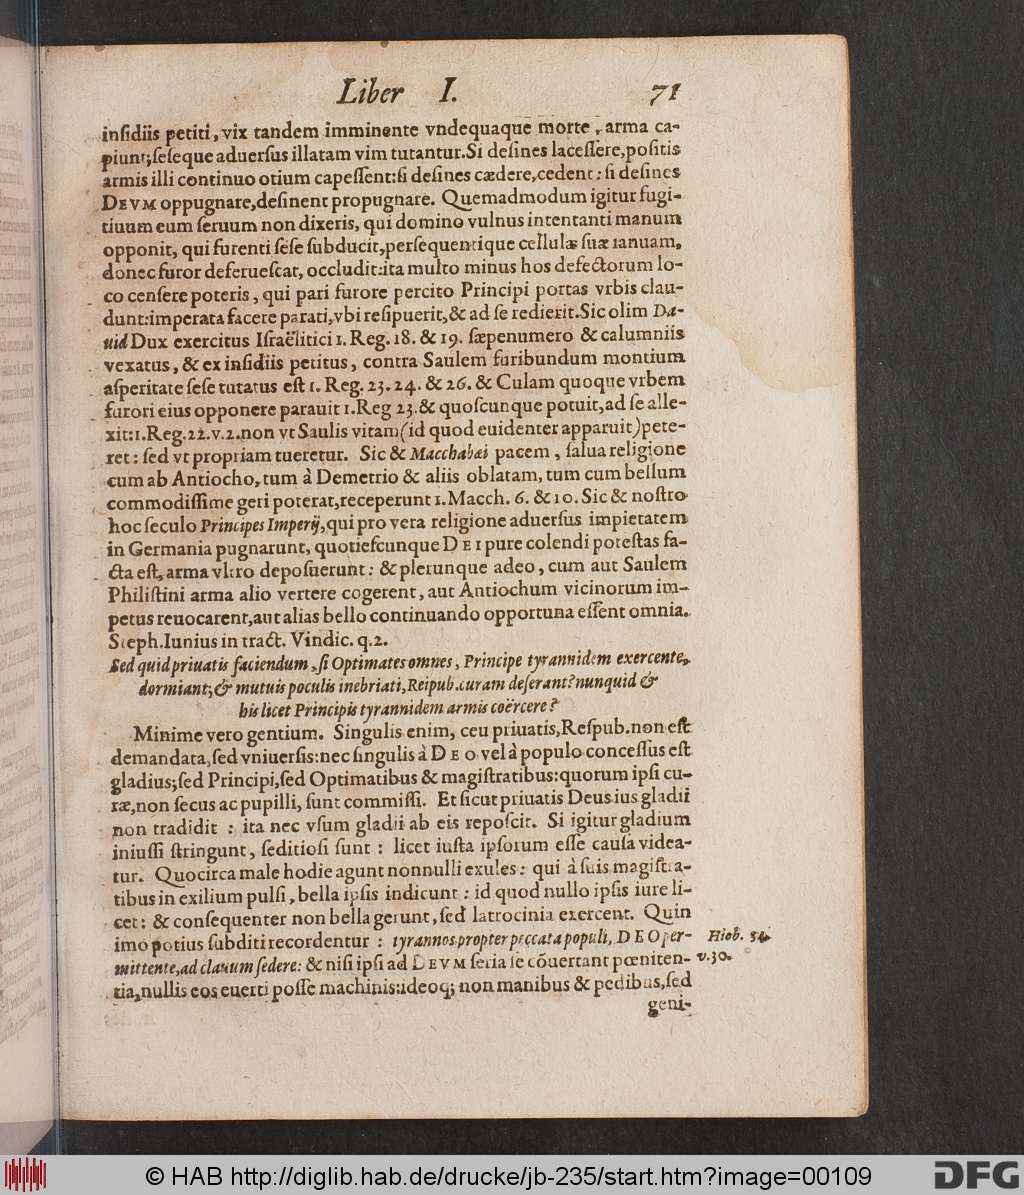 Liber I. 71
inſidiis petiti, vix tandem imminente vndequaque morte, arma ca-
piunt; ſeſeque aduerſus illatam vim tutantur. Si deſines laceſſere, poſitis
armis illi continuo otium capeſſent: ſi deſines cædere, cedent: ſi deſines
DEVM oppugnare, deſinent propugnare. Quemadmodum igitur fugi-
tiuum eum ſeruum non dixeris, qui domino vulnus intentanti manum
opponit, qui furenti ſeſe ſubducit, perſequentique cellulæ ſuæ ianuam,
donec furor deferueſcat, occludit: ita multo minus hos defectorum lo-
co cenſere poteris, qui pari furore percito Principi portas vrbis clau-
dunt: imperata facere parati, vbi reſipuerit, & ad ſe redierit. Sic olim Da-
uid Dux exercitus Iſraëlitici 1. Reg. 18. & 19. ſæpenumero & calumniis
vexatus, & ex inſidiis petitus, contra Saulem furibundum montium
aſperitate ſeſe tutatus eſt 1. Reg. 23. 24. & 26. & Culam quoque vrbem
furori eius opponere parauit 1. Reg 23. & quoſcunque potuit, ad ſe alle-
xit: 1. Reg. 22. v. 2. non vt Saulis vitam (id quod euidenter apparuit) pete-
ret: ſed vt propriam tueretur. Sic & Macchabæi pacem, ſalua religione
cum ab Antiocho, tum à Demetrio & aliis oblatam, tum cum bellum
commodiſſime geri poterat, receperunt 1. Macch. 6. & 10. Sic & noſtro
hoc ſeculo Principes Imperij, qui pro vera religione aduerſus impietatem
in Germania pugnarunt, quotieſcunque DEI pure colendi poteſtas fa-
cta eſt, arma vltro depoſuerunt: & plerunque adeo, cum aut Saulem
Philiſtini arma alio vertere cogerent, aut Antiochum vicinorum im-
petus reuocarent, aut alias bello continuando opportuna eſſent omnia.
Steph. Iunius in tract. Vindic. q. 2.
Sed quid priuatis faciendum, ſi Optimates omnes, Principe tyrannidem exercente,
dormiant; & mutuis poculis inebriati, Reipub. curam deſerant? nunquid &
his licet Principis tyrannidem armis coërcere?
Minime vero gentium. Singulis enim, ceu priuatis, Reſpub. non eſt
demandata, ſed vniuerſis: nec ſingulis à DEO vel à populo conceſſus eſt
gladius; ſed Principi, ſed Optimatibus & magiſtratibus: quorum ipſi cu-
ræ, non ſecus ac pupilli, ſunt commiſſi. Et ſicut priuatis Deus ius gladii
non tradidit : ita nec vſum gladii ab eis repoſcit. Si igitur gladium
iniuſſi ſtringunt, ſeditioſi ſunt : licet iuſta ipſorum eſſe cauſa videa-
tur. Quocirca male hodie agunt nonnulli exules: qui à ſuis magiſtra-
tibus in exilium pulſi, bella ipſis indicunt : id quod nullo ipſis iure li-
cet: & conſequenter non bella gerunt, ſed latrocinia exercent. Quin
imo potius ſubditi recordentur : tyrannos propter peccata populi, DEO per-
mittente, ad clauum ſedere: & niſi ipſi ad DEVM ſeria ſe cõuertant pœniten-
tia, nullis eos euerti poſſe machinis: ideoq; non manibus & pedibus, ſed
geni-
Hiob. 34.
v. 30.
© HAB http://diglib.hab.de/drucke/jb-235/start.htm?image=00109
DFG